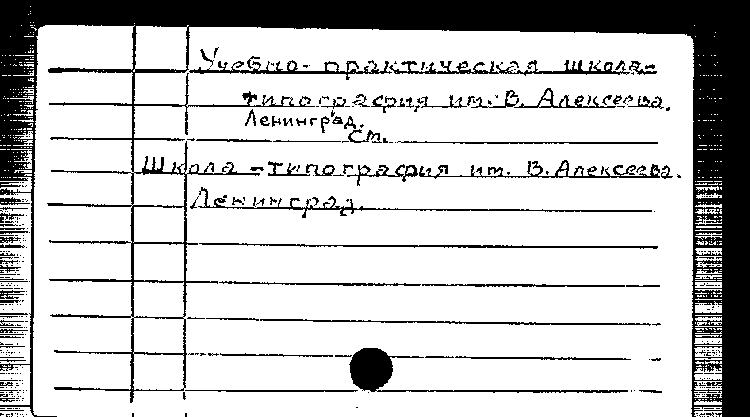 Учебно-практическая школа-
типография им. В. Алексеева.
Ленинград.
См.
Школа-типография им. В. Алексеева.
Ленинград.